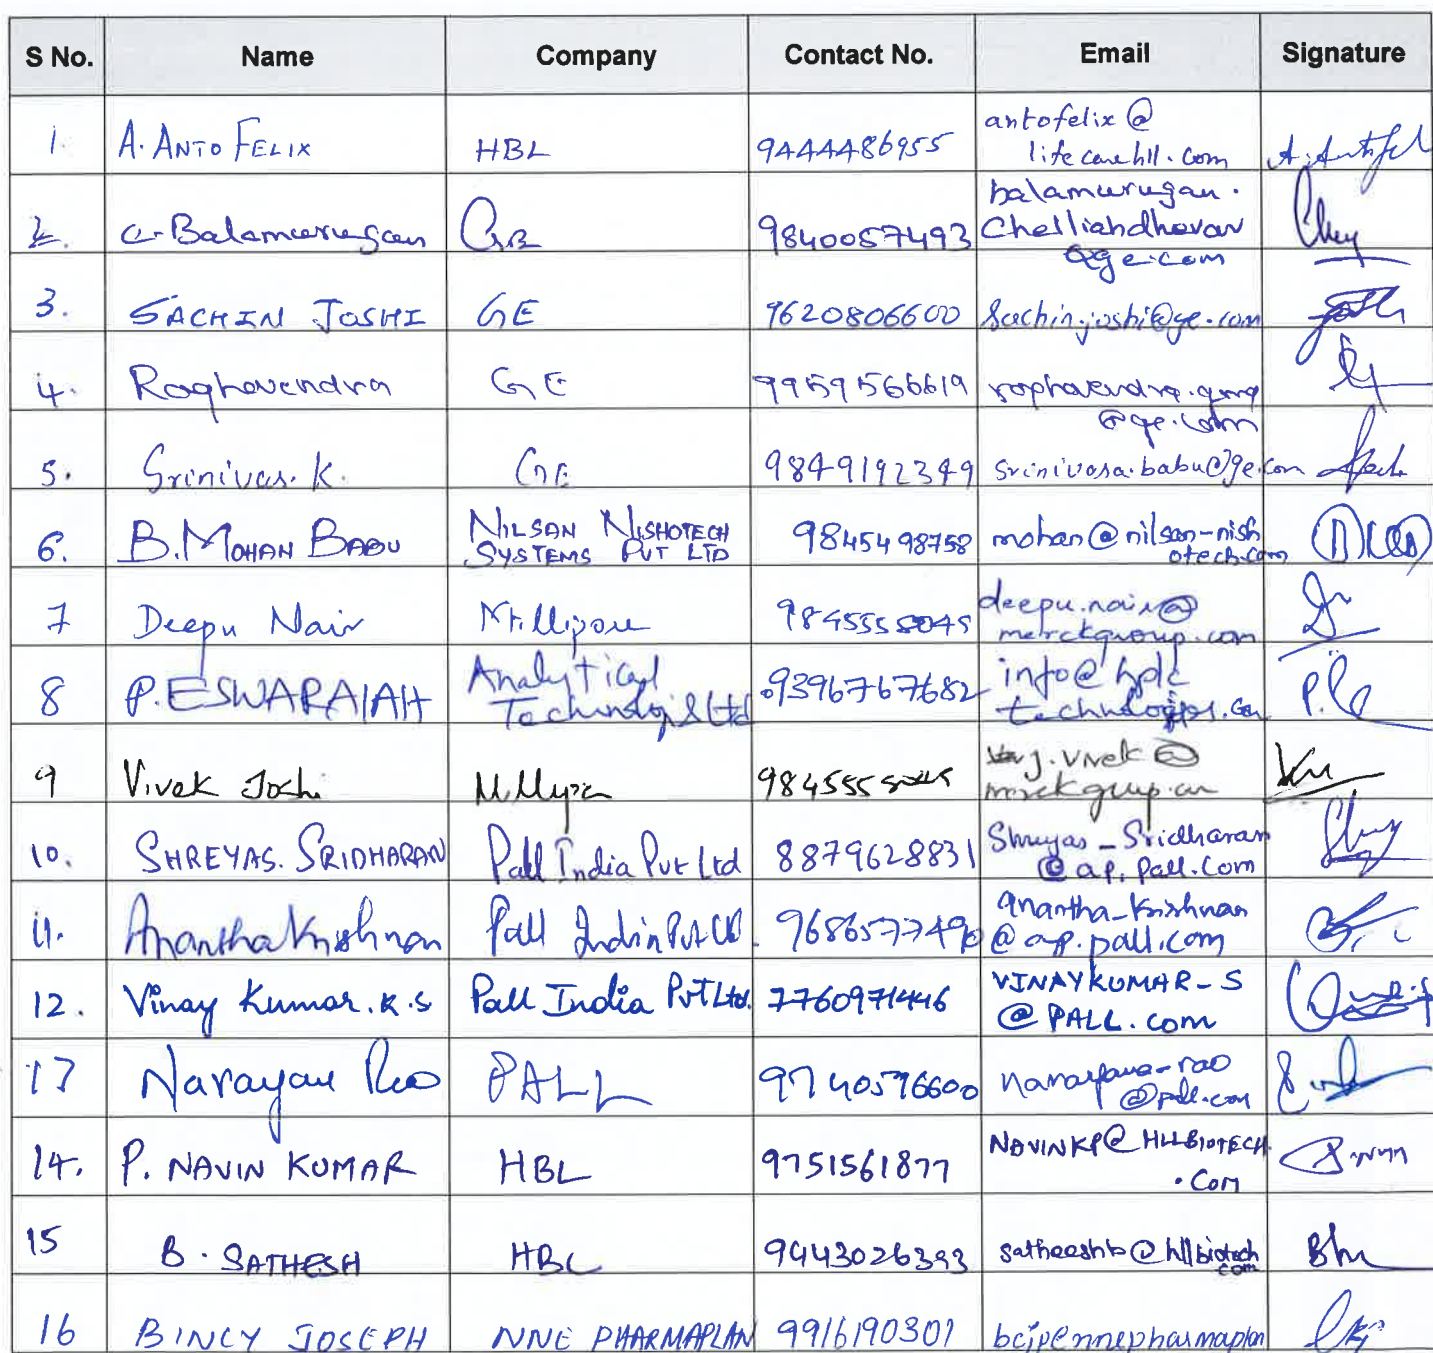 S No. Name Company Contact No. Email Signature
1. A. ANTO FELIX HBL 9444486955 antofelix @
lifecarehll.com
2. C. Balamurugan GE 9840057493 balamurugan.
Chelliahdhevar
@ge.com
3. SACHIN JOSHI GE 9620806600 Sachin.joshi@ge.com
4. Raghavendra GE 9959156619
@ge.com
5. Srinivas. K. GE 9849192349 srinivasa.babu@ge.com
6. B. MOHAN BABU NILSAN NISHOTECH
SYSTEMS PVT LTD 9845498758 mohan@nilsan-nish
otech.com
7 Deepu Nair Millipore 9845555045 deepu.nair@
merckgroup.com
8 P. ESWARAIAH Analytical
Technologies Ltd 09396767682 info@hplc
technologies.com
9 Vivek Joshi Millipore j.vivek @
merckgroup.com
10. SHREYAS. SRIDHARAN Pall India Pvt Ltd 8879628831 Shreyas_Sridharan
@ap.Pall.Com
11. AnanthaKrishnan Pall India Pvt Ltd. 9686577490 anantha_krishnan
@ap.pall.com
12. Vinay Kumar. K.S Pall India Pvt Ltd. 7760971446 VINAYKUMAR_S
@PALL.com
13 Narayan Rao PALL 9740596600 narayana_rao
@pall.com
14. P. NAVIN KUMAR HBL 9751561877 NAVINKP@HLLBIOTECH
.Com
15 B. SATHESH HBL 9443026393 satheeshb@hllbiotech
com
16 BINCY JOSEPH NNE PHARMAPLAN 9916190301 bcjp@nnepharmaplan